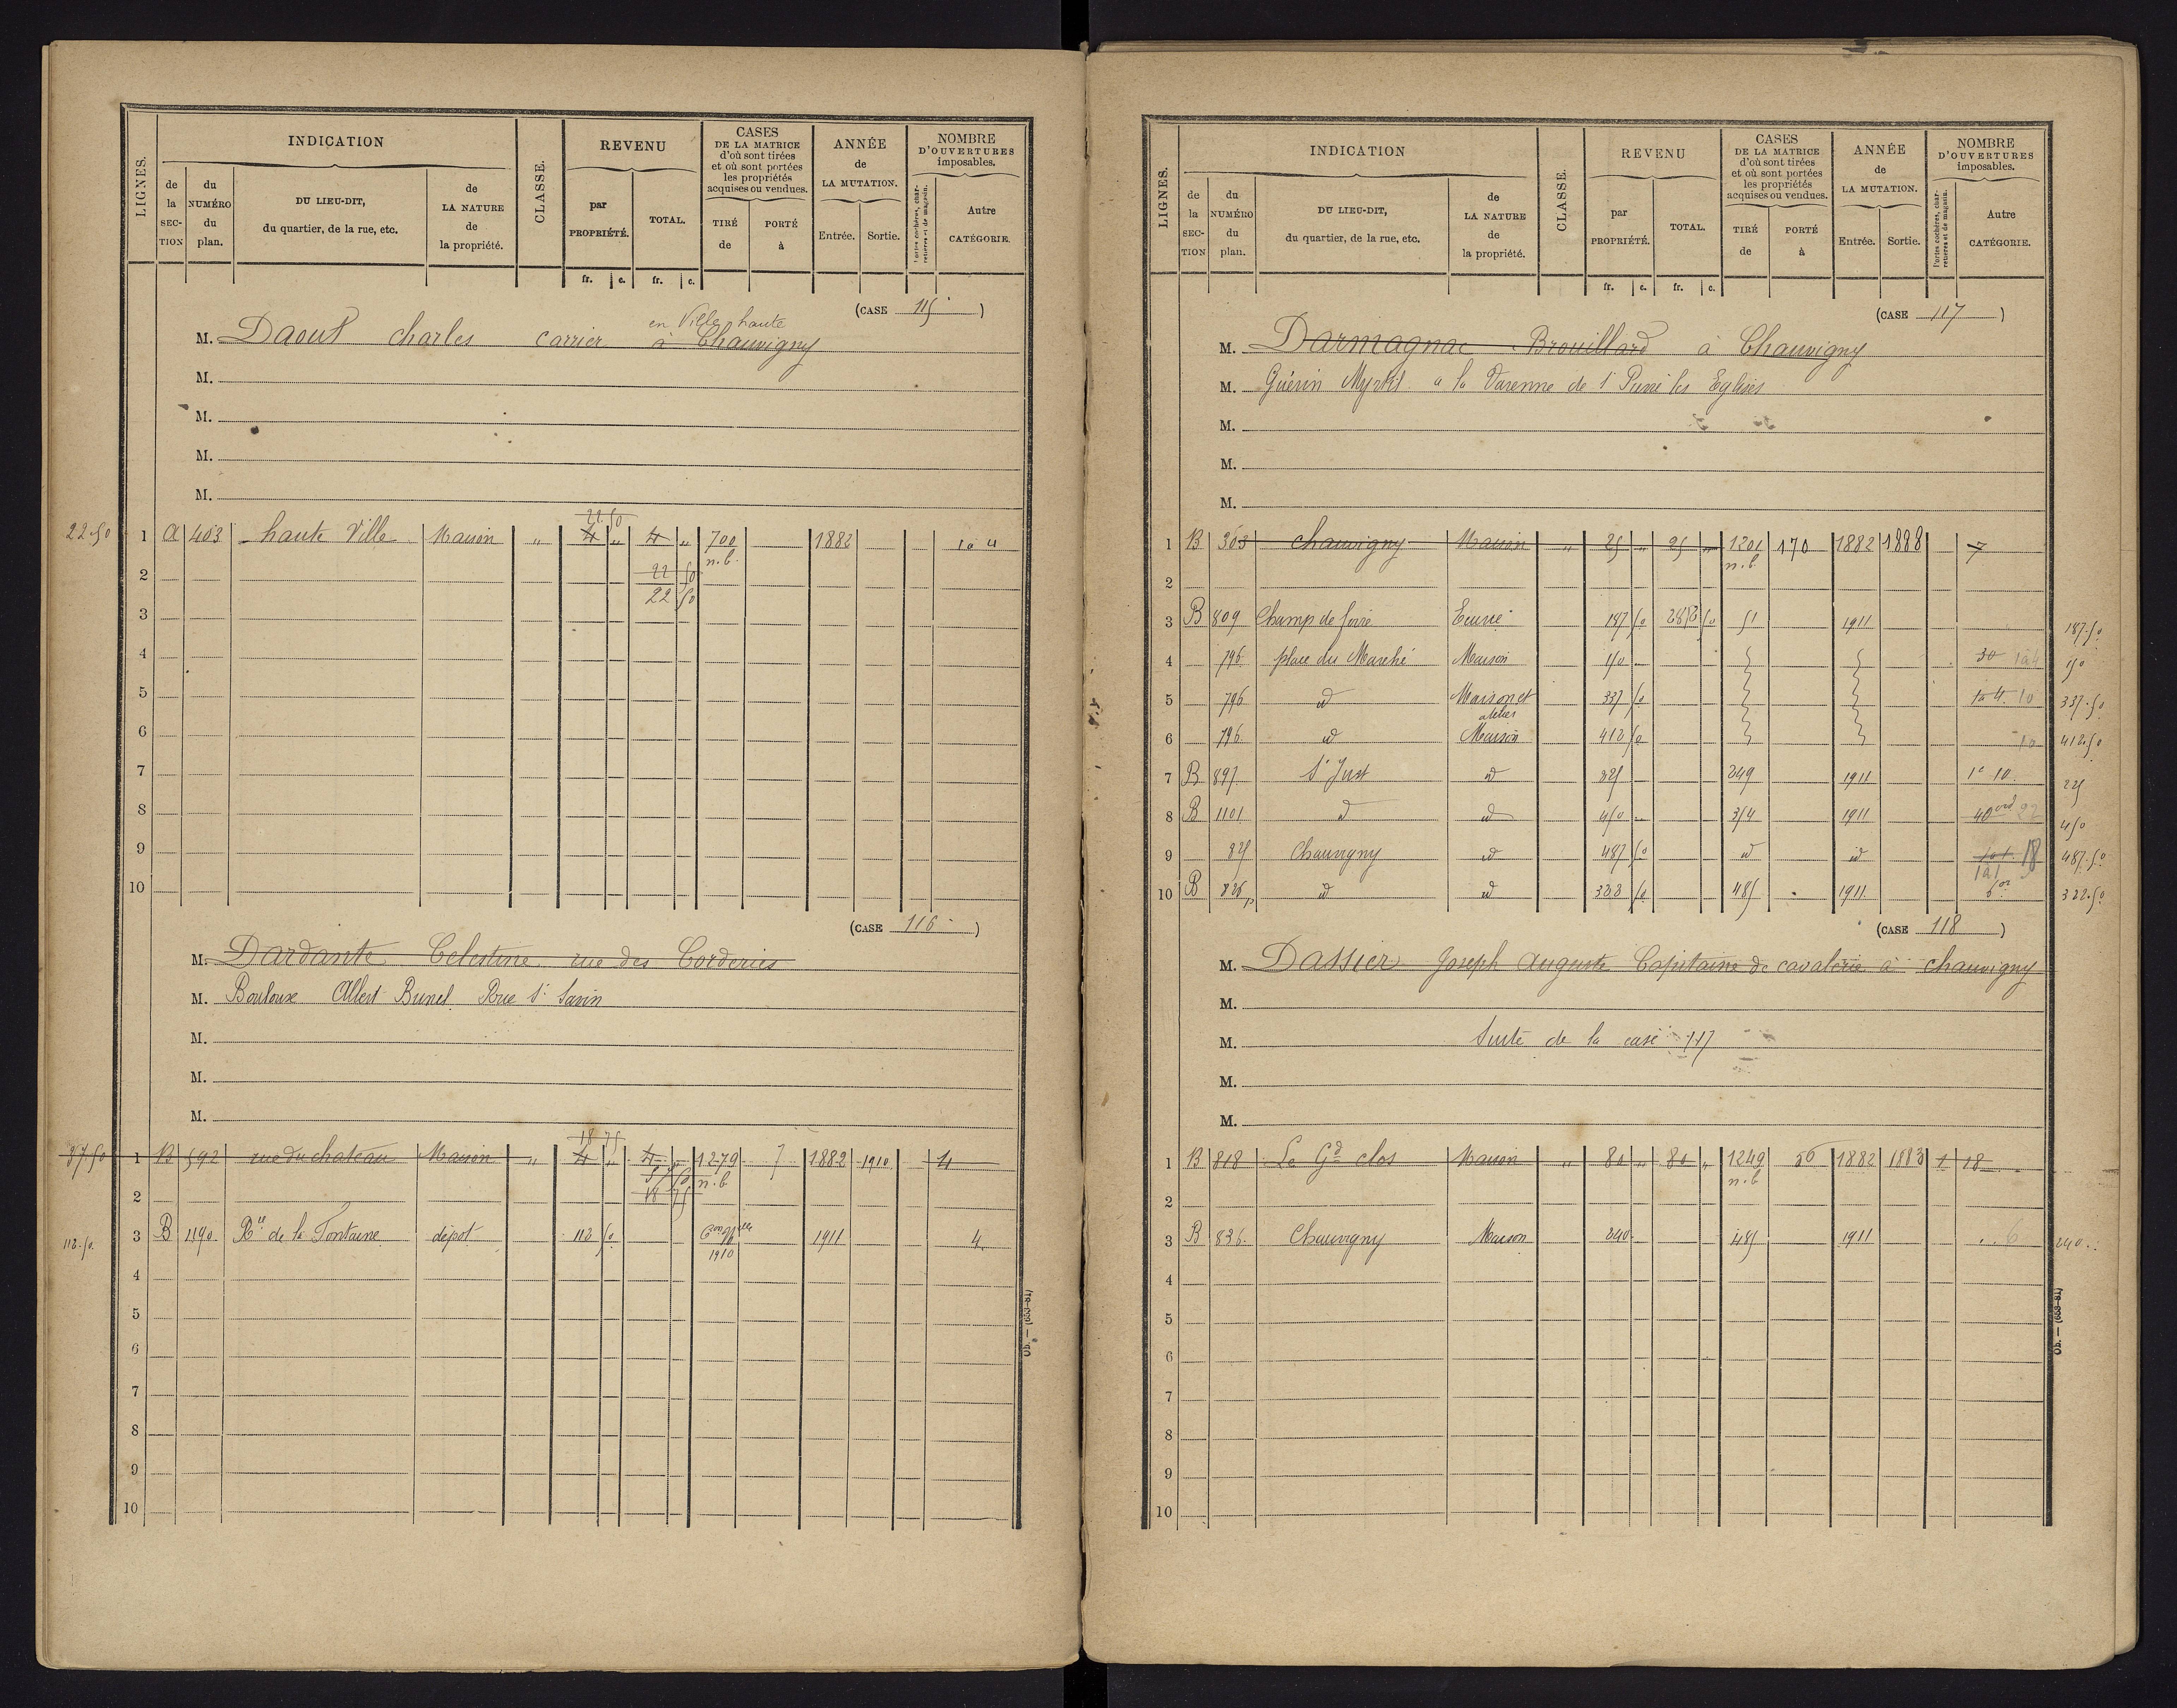 LIGNES.
INDICATION
de la SECTION
du NUMÉRO du plan.
DU LIEU-DIT, du quartier, de la rue, etc.
de LA NATURE de la propriété.
CLASSE.
REVENU
par PROPRIÉTÉ.
TOTAL.
CASES DE LA MATRICE d'où sont tirées et où sont portées les propriétés acquises ou vendues.
TIRÉ de
PORTÉ à
ANNÉE de LA MUTATION.
Entrée.
Sortie.
NOMBRE D'OUVERTURES imposables.
Portes cochères, charretières et de magasin.
Autre CATÉGORIE.
fr. c. fr. c.
(CASE 115 )
en Ville haute
M. Daout charles carrier à Chauvigny
M.
M.
M.
M.
22.50
22.50 1 A 403 haute Ville Maison " 4 " 4 " 700 1882 1 à 4
2 22 50 n.b.
22 50
3
4
5
6
7
8
9
10
(CASE 116 )
M. Dardante Celestine rue des Corderies
M. Bouloux Albert Brunel Rue St Savin
M.
M.
M.
18 75
37.50 1 B 592 rue du chateau Maison " 4 " 4 " 1279 7 1882 1910 4
n.b
2 18 75
112.50. 3 B 1190 Rue de la Fontaine dépot 112 50 1911 4
1910
4
5
6
7
8
9
10
Ob. — (653-81)
LIGNES.
INDICATION
de la SECTION
du NUMÉRO du plan.
DU LIEU-DIT, du quartier, de la rue, etc.
de LA NATURE de la propriété.
CLASSE.
REVENU
par PROPRIÉTÉ.
TOTAL.
CASES DE LA MATRICE d'où sont tirées et où sont portées les propriétés acquises ou vendues.
TIRÉ de
PORTÉ à
ANNÉE de LA MUTATION.
Entrée.
Sortie.
NOMBRE D'OUVERTURES imposables.
Portes cochères, charretières et de magasin.
Autre CATÉGORIE.
fr. c. fr. c.
(CASE 117 )
M. Darmagnac Brouillard à Chauvigny
M. Guérin Myrtil a la Varenne de St Pierre les Eglises
M.
M.
M.
1 B 363 Chauvigny Maison " 25 " 25 " 1201 170 1882 1888 7
n.b
2
3 B 809 Champ de foire Ecurie 187 50 50 51 1911 187.50
4 796 place du Marché Maison 150 30 1 à 4 150
5 796 id Maison et atelier 337 50 1 à 4 10 337.50
6 796 id Maison 412 50 10 412.50
7 B 897 St Just id 225 249 1911 10 225
8 B 1101 id id 450 354 1911 40 ord 22 450
9 825 Chauvigny id 487 50 id id 18 487.50
1 à 1
10 B 826p id id 322 50 485 1911 322.50
(CASE 118 )
M. Dassier Joseph Auguste Capitaine de cavalerie à chauvigny
M.
M. Suite de la case 117
M.
M.
1 B 818 Le Gd clos Maison " 80 " 80 " 1249 56 1882 1883 1 18
n.b
2
3 B 836 Chauvigny Maison 240 485 1911 6 240
4
5
6
7
8
9
10
Ob. — (653-81)